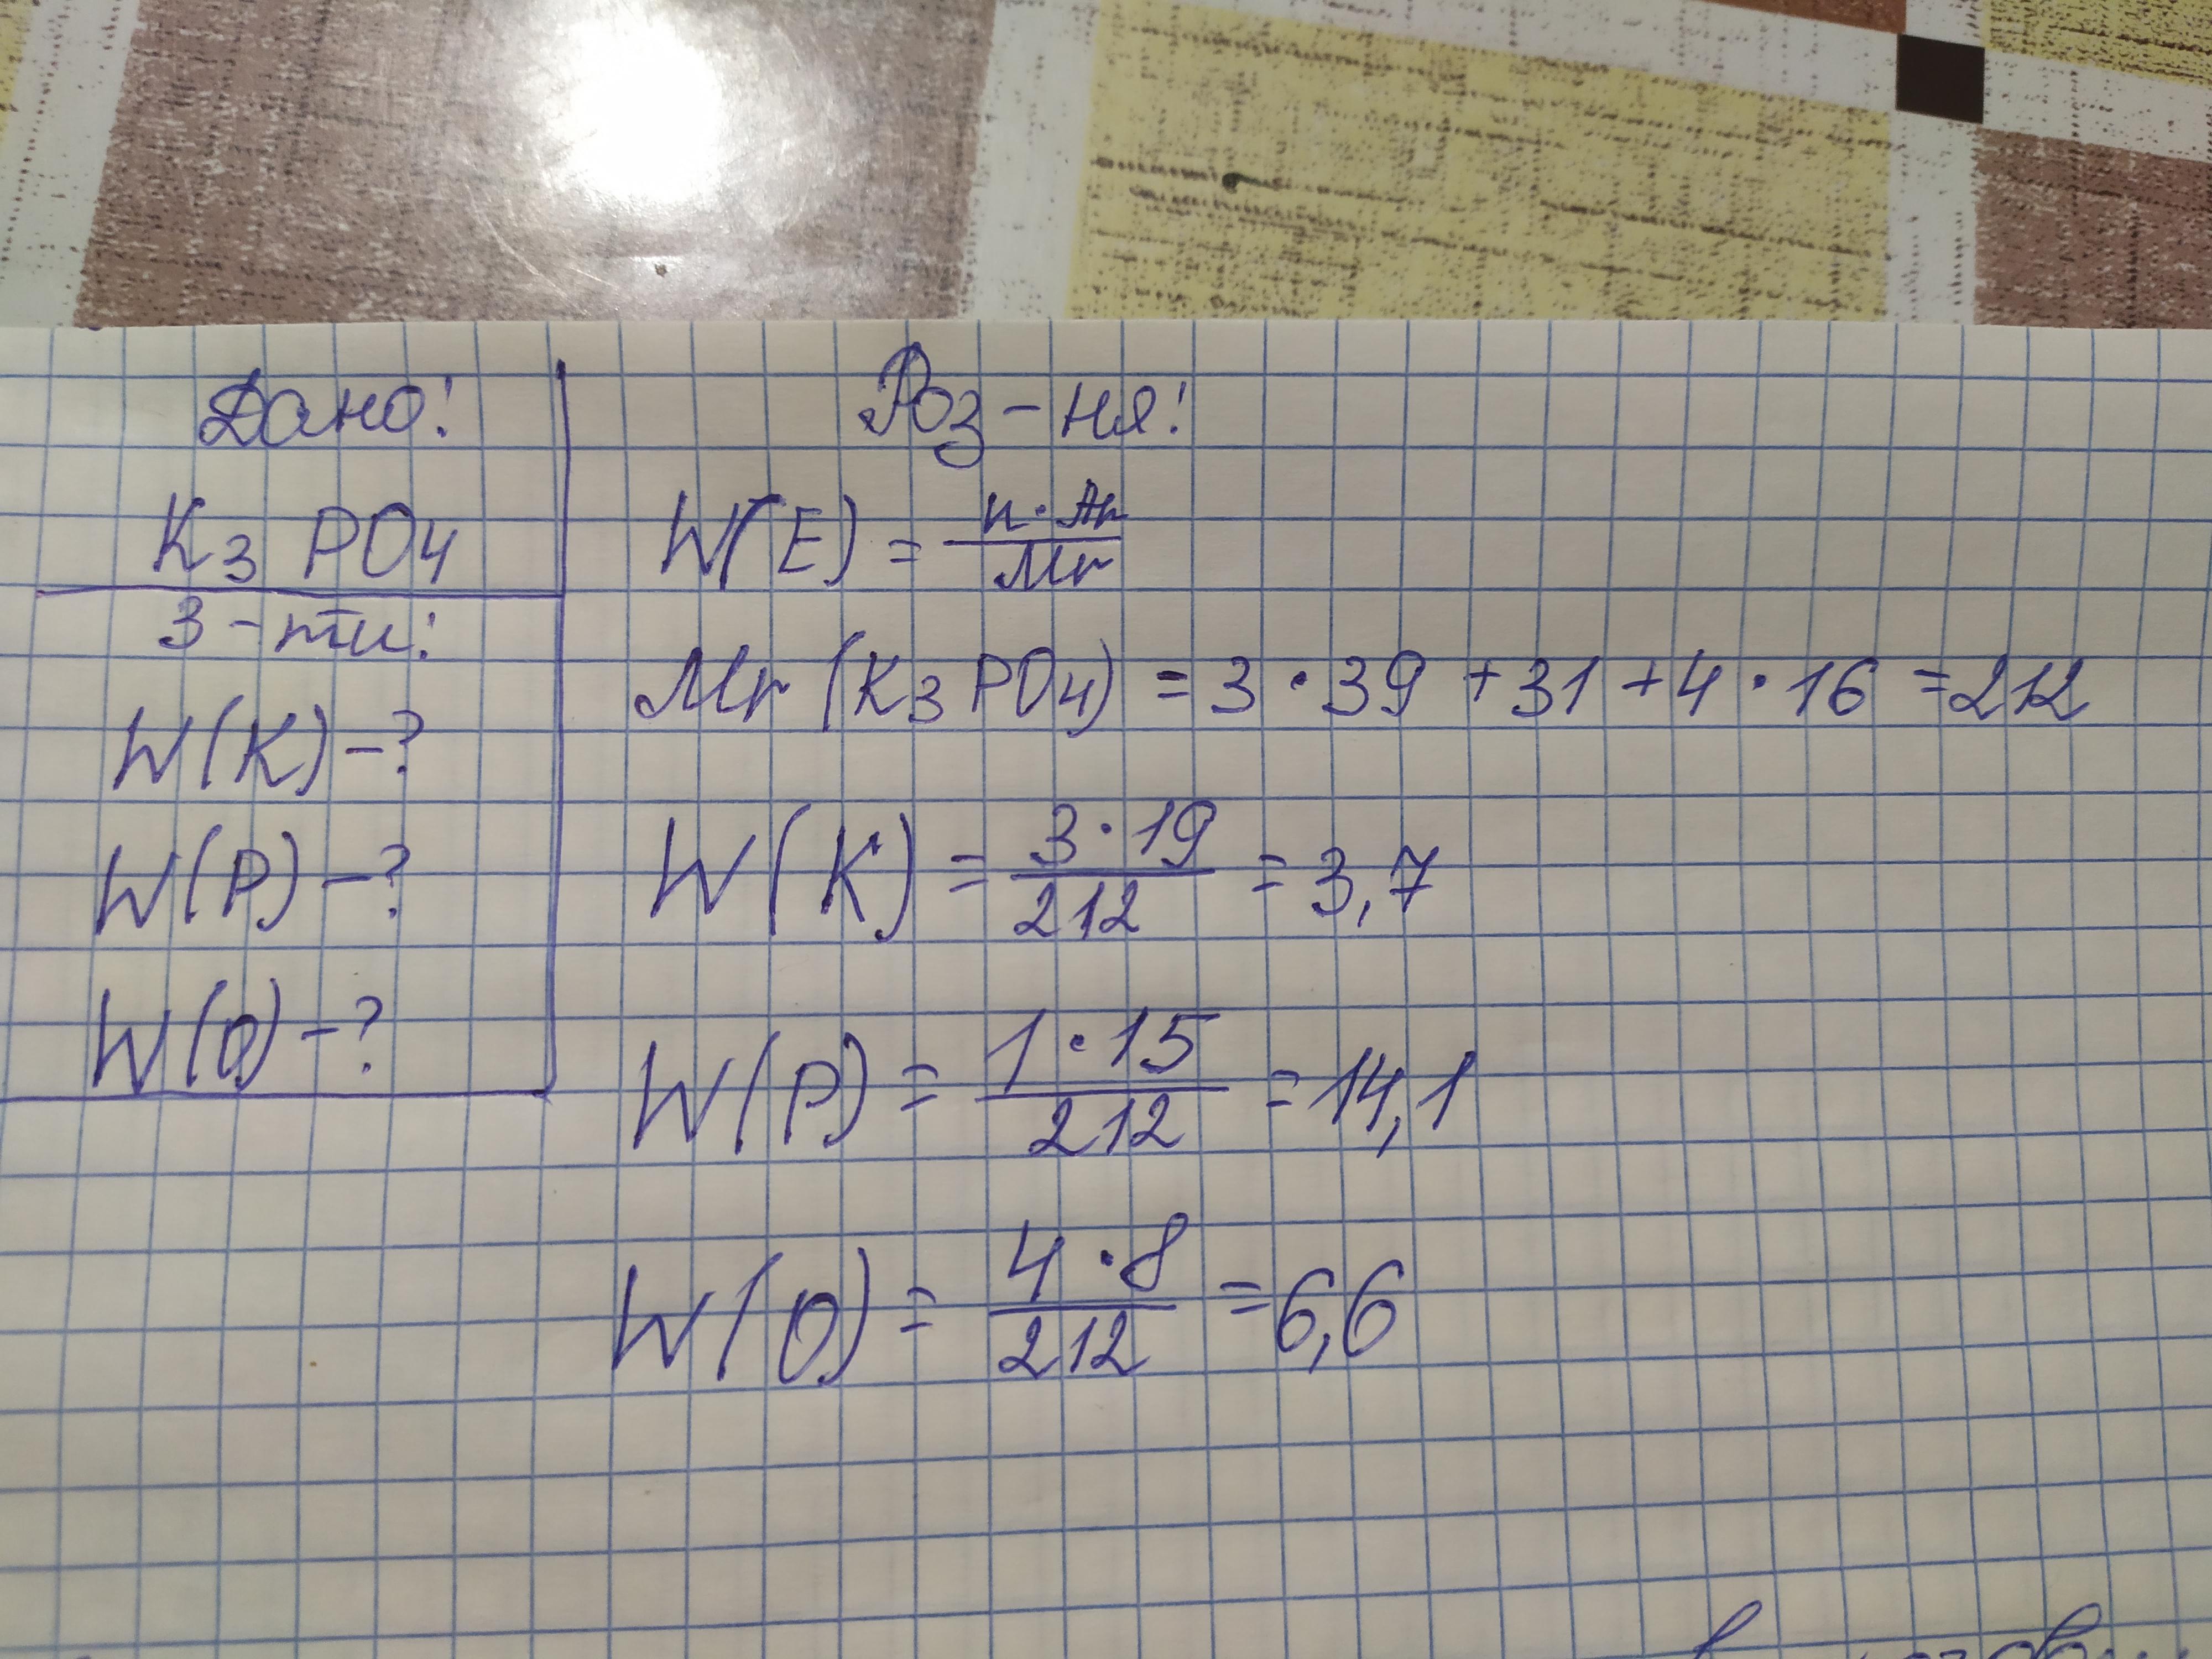 Дано:
K3 PO4
З-ти:
W(K)-?
W(P)-?
W(O)-?
Роз-ня:
W(E) = n·Ar / Mr
Mr (K3 PO4) = 3·39 +31 +4·16 =212
W(K) = 3·19 / 212 = 3,7
W(P) = 1·15 / 212 = 14,1
W(O) = 4·8 / 212 = 6,6